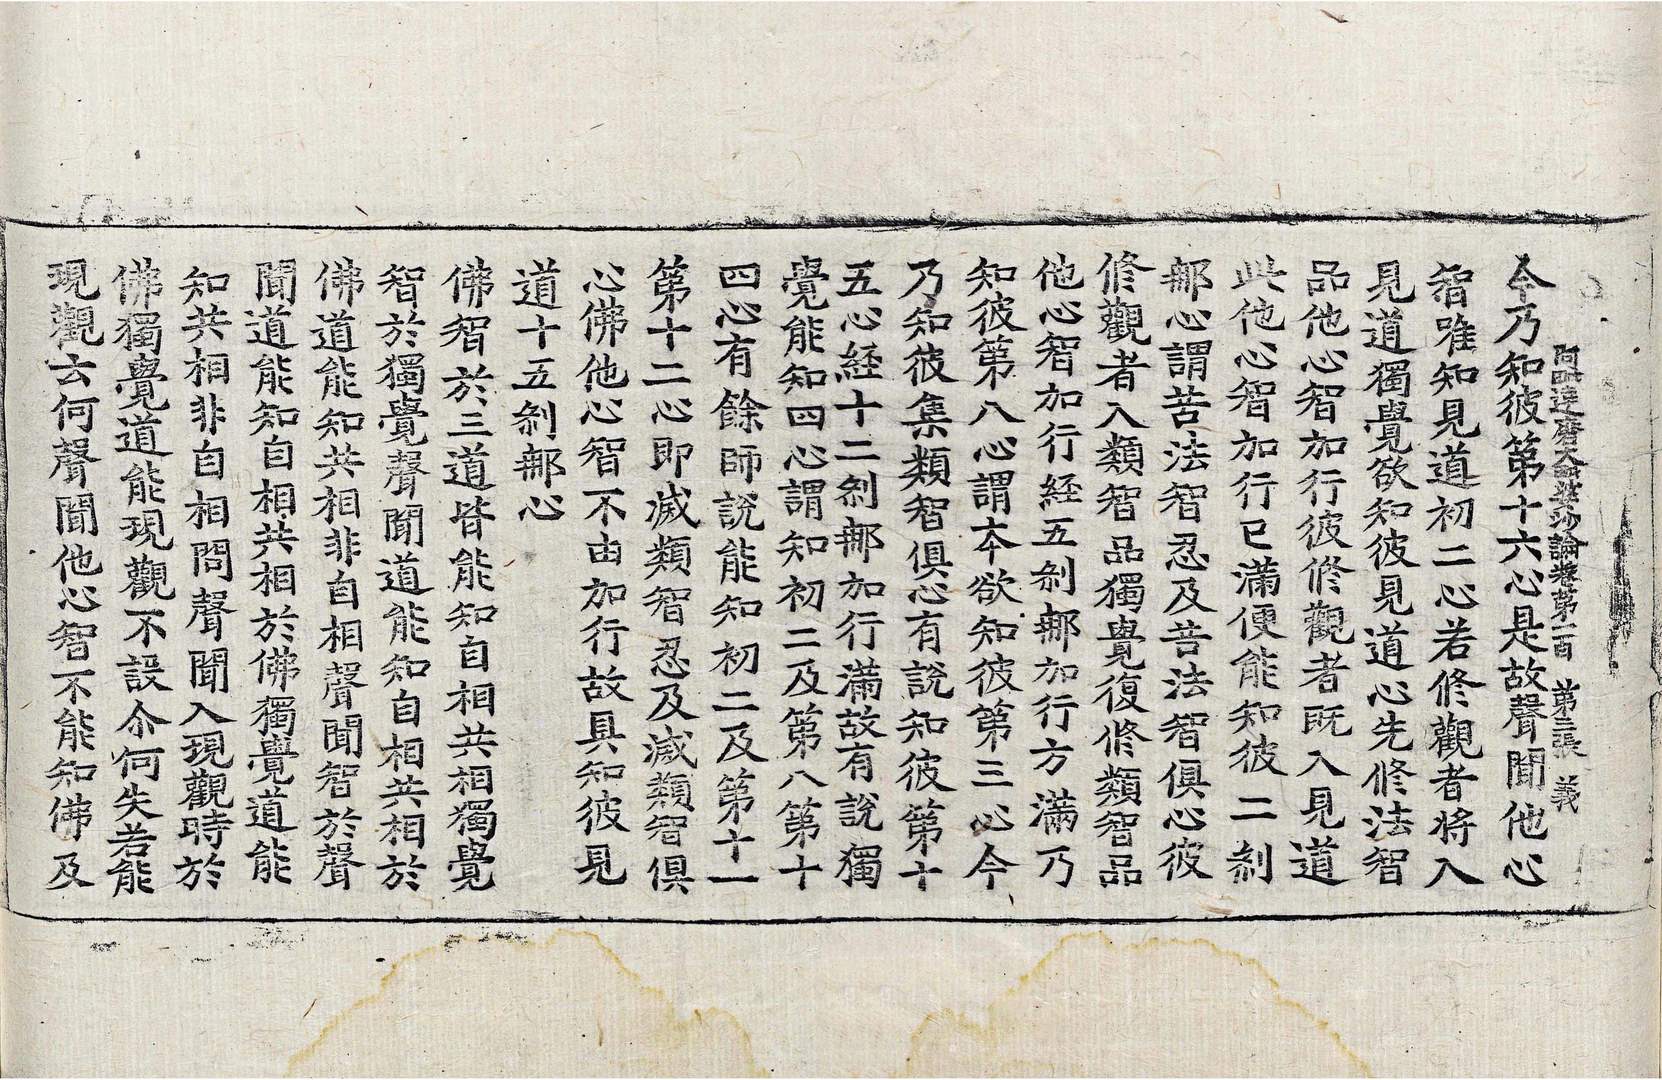 阿毗達磨大毗婆沙論卷第一百 第三張 義
今乃知彼第十六心是故聲聞他心
智唯知見道初二心若修觀者將入
見道獨覺欲知彼見道心先修法智
品他心智加行彼修觀者既入見道
此他心智加行已滿便能知彼二剎
那心謂苦法智忍及苦法智俱心彼
修觀者入類智品獨覺復修類智品
他心智加行經五剎那加行方滿乃
知彼第八心謂本欲知彼第三心今
乃知彼集類智俱心有說知彼第十
五心經十二剎那加行滿故有說獨
覺能知四心謂知初二及第八第十
四心有餘師說能知初二及第十一
第十二心即滅類智忍及滅類智俱
心佛他心智不由加行故具知彼見
道十五剎那心
佛智於三道皆能知自相共相獨覺
智於獨覺聲聞道能知自相共相於
佛道能知共相非自相聲聞智於聲
聞道能知自相共相於佛獨覺道能
知共相非自相問聲聞入現觀時於
佛獨覺道能現觀不設尒何失若能
現觀云何聲聞他心智不能知佛及